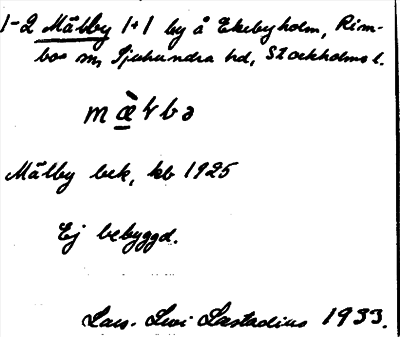 1-2 Målby 1+1 by å Ekebyholm, Rim-
bo sn, Sjuhundra hd, Stockholms l.
Målby bek, kb 1925
Ej bebyggd.
Lars-Levi Læstadius 1933.